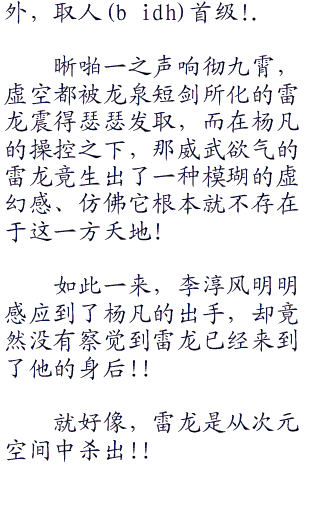 外，取人(b idh)首级!.
晰啪一之声响彻九霄，
虚空都被龙泉短剑所化的雷
龙震得瑟瑟发取，而在杨凡
的操控之下，那威武欲气的
雷龙竟生出了一种模瑚的虚
幻感、仿佛它根本就不存在
于这一方天地!
如此一来，李淳风明明
感应到了杨凡的出手，却竟
然没有察觉到雷龙已经来到
了他的身后!!
就好像，雷龙是从次元
空间中杀出!!